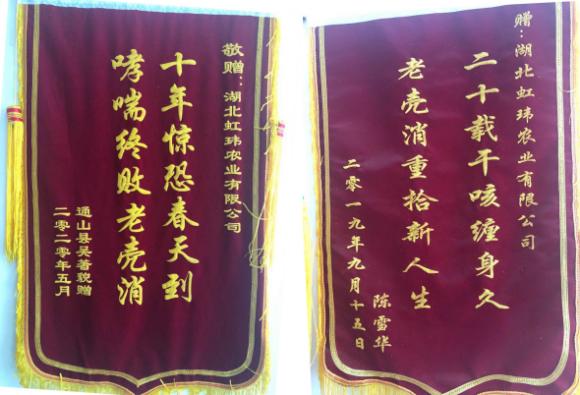 敬赠：湖北虹玮农业有限公司
十年惊恐春天到
哮喘终败老壳消
通山县吴著貌赠
二零二零年五月
赠：湖北虹玮农业有限公司
二十载干咳缠身久
老壳消重拾新人生
陈雪华
二零一九年九月十五日